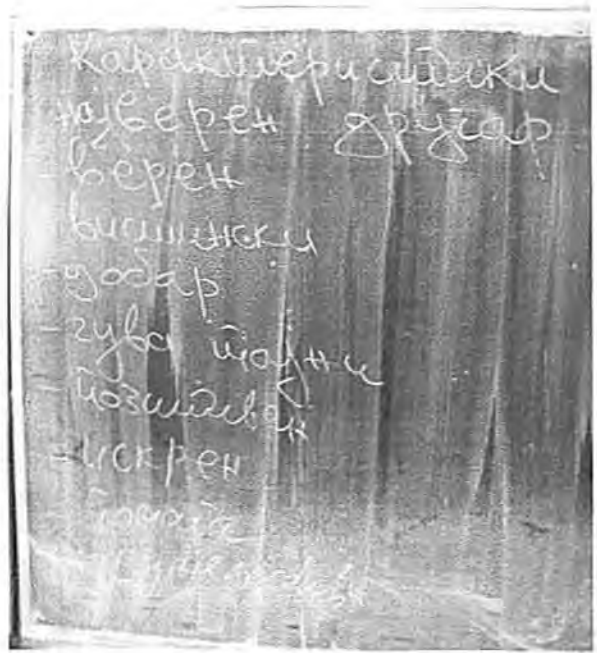 Карактеристики
најверен другар
- верен
- вистински
- добар
- чува тајни
- позитивен
- искрен